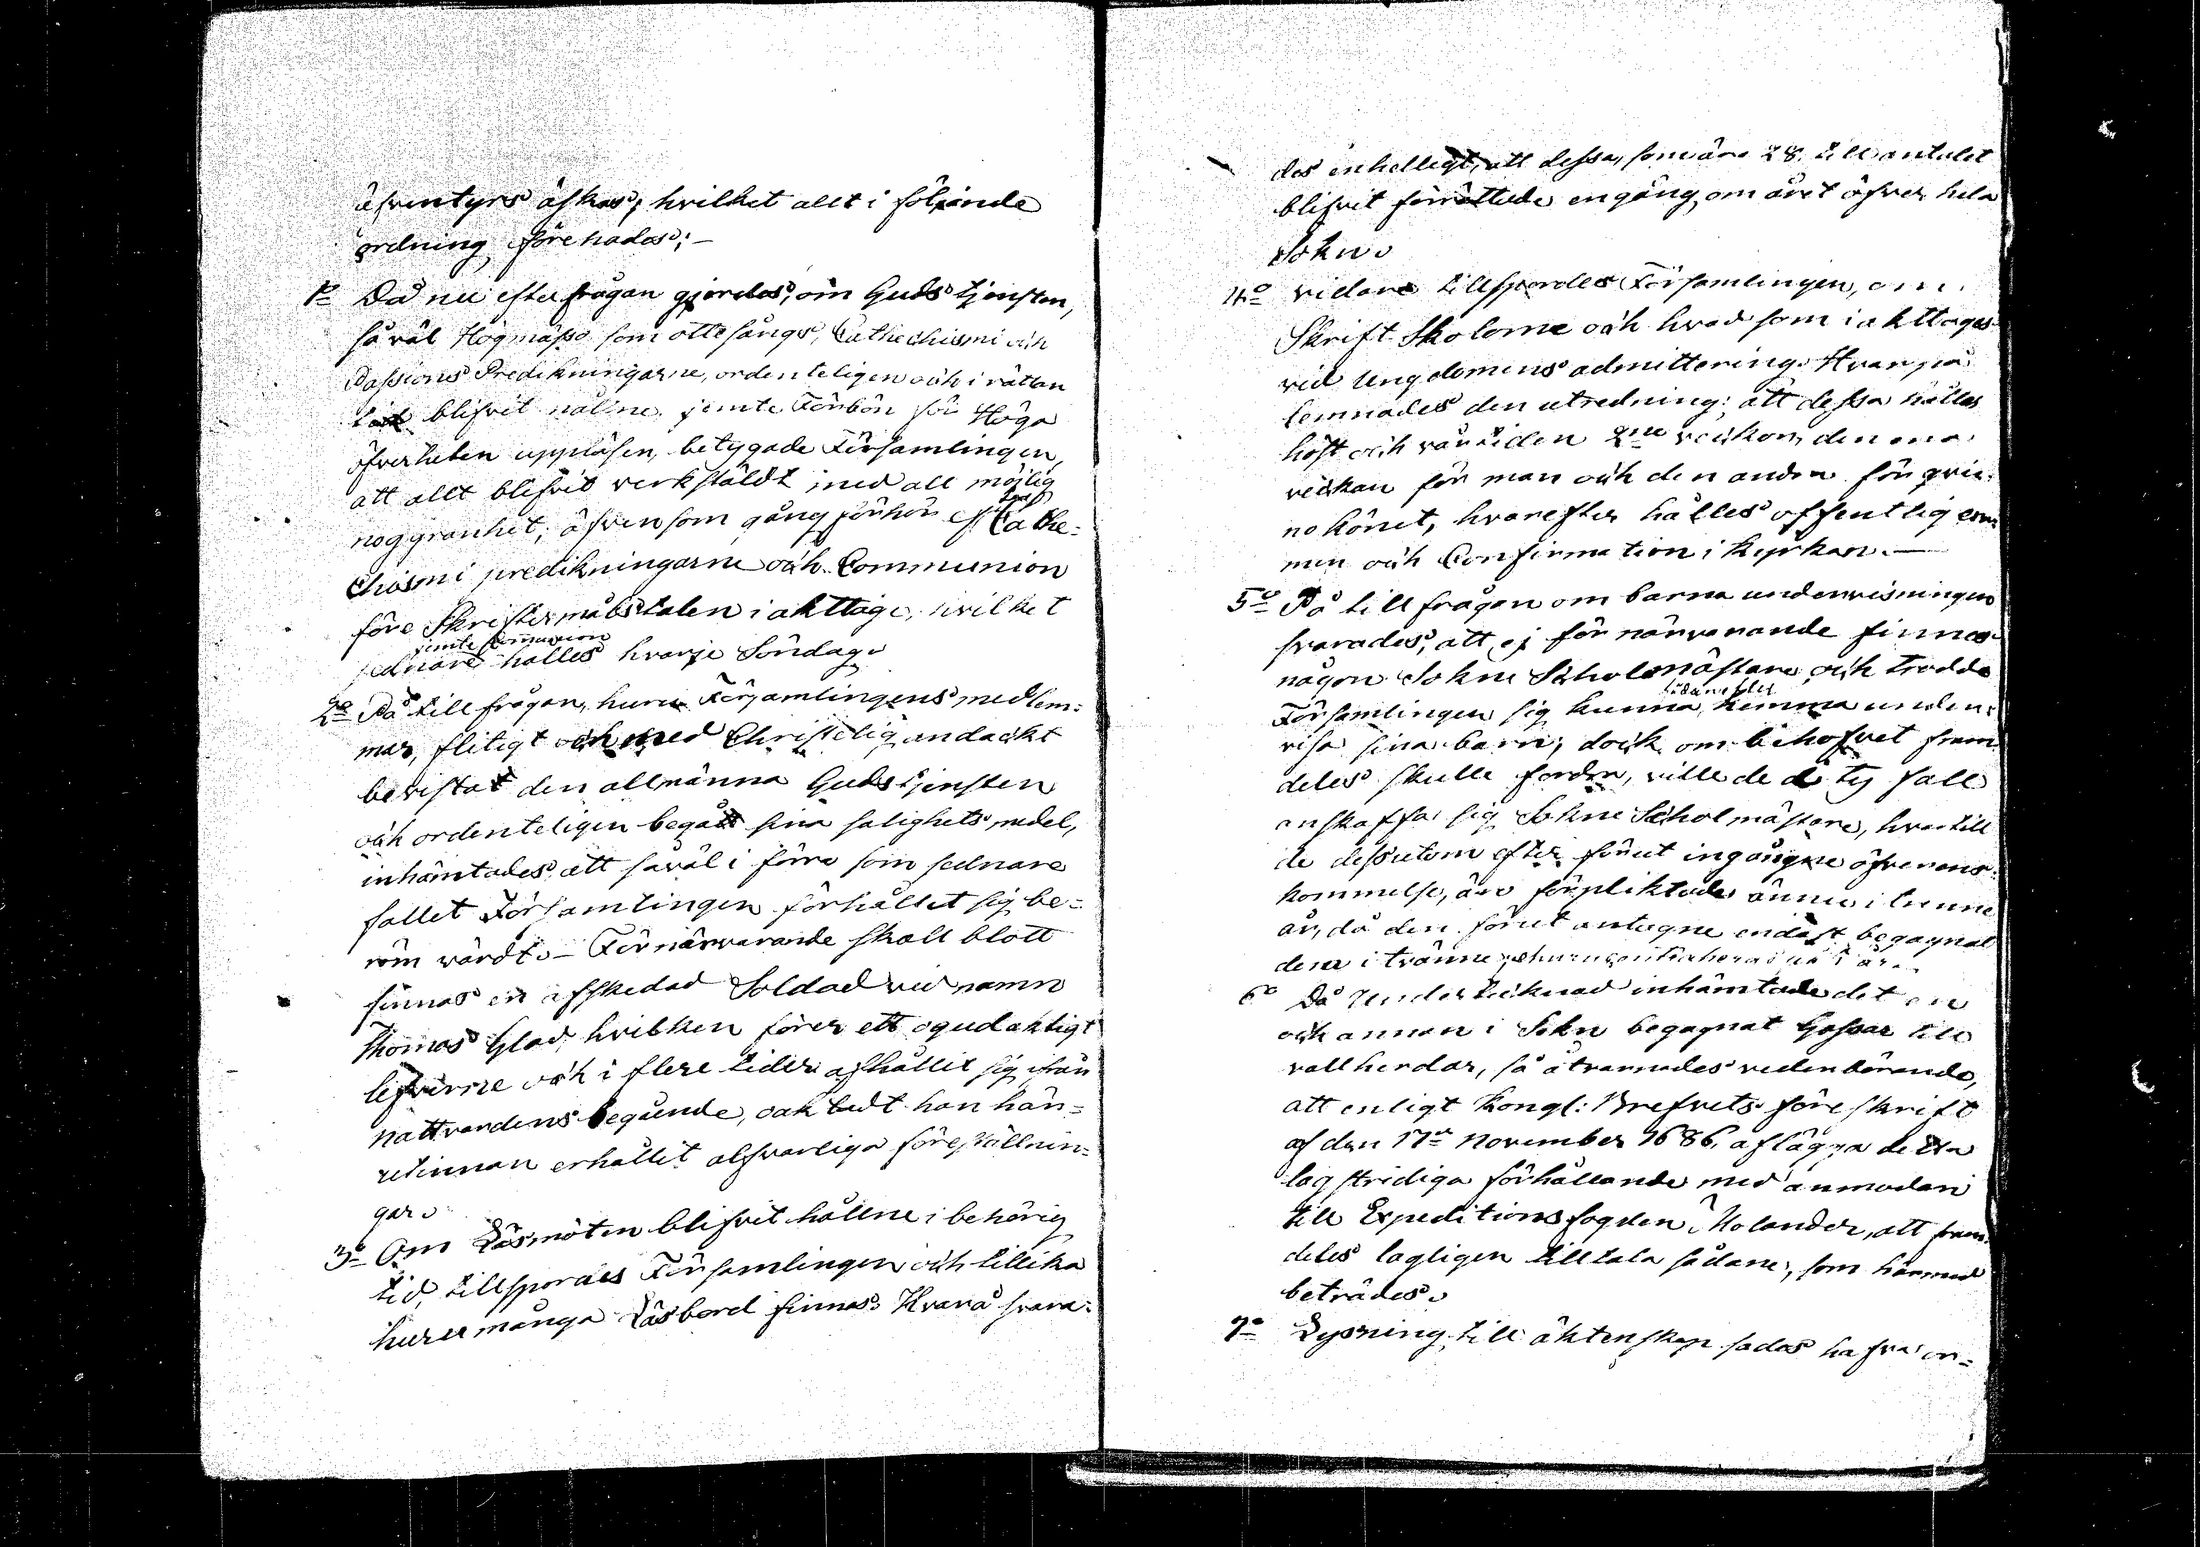 äfventyrs äskas; hvilket allt i följande
ordning förehades; —
1o Då nu efterfrågan gjordes, om Gudstjensten,
så väl Högmässo som ottesångs, Cathechismi och
Passions Predikningarne, ordenteligen och i rättan
tid blifvit hållne jemte Förbön för Höga
öfverheten uppläsen, betygade Församlingen,
att allt blifvit verkstäldt med all möjlig
noggranhet, äfvensom gång förhör Cathe-
chismi predikningarne och Communion
före Skriftermålstalen i akttage, hvilket
jemte Communion
sednare hålles hvarje Söndag.
2o På tillfrågan, huru Församlingens medlem-
mar, flitigt och med Christelig andackt
bevistat den allmänna Gudstjensten
och ordenteligen begått sina salighets medel,
inhämtades att såväl i förra som sednare
fallet Församlingen förhållet sig be-
röm värdt. — För närvarande skall blott
finnas en afskedad Soldad vid namn
Thomas Glad, hvilken förer ett ogudaktigt
lefverne och i flere tider afhållit sig ifrån
nattvardens begående, oaktadt han här-
utinnan erhållit alfvarliga föreställnin-
gar.
3o Om Läsmöten blifvit hållne i behörig
tid, tillspordes Församlingen och tillika
huru många Läsbord finnas. Hvarå svara-
des enhelligt, att dessa, som äro 28. till antalet
blifvit förrättade en gång om året öfver hela
Sokn.
4o vidare tillspordes Församlingen, om
Skrift Skolorne och hvad som i akttages
vid Ungdomens admittering. Hvarpå
lemnades den utredning; att dessa hålles
höst och vårtiden 2ne veckor, den ena
veckan för man och den andra för qvin-
nokönet, hvarefter hålles offentlig exa-
men och Confirmation i Kyrkan. —
5o På tillfrågan om barna undervisningen
svarades, att ej för närvarande finnes
någon Sokne Scholmästare, och trodde
Församlingen sig kunna hemma under-
visa sina barn; dock om behofvet fram
deles skulle fordra, ville de i ty fall
anskaffa sig Sokne Scholmästare, hvartill
de dessutom efter förut ingångne öfverens-
kommelse, äro förpliktade ännu i tvenne
år, då den förut antagne endast begagnat
denne i tränne
6o Då Undertecknad inhämtade det en
och annan i Sokn begagnat Gossar till
vallherdar, så åtvarnades vederbörande,
att enligt Kongl: Brefvets föreskrift
af den 17de November 1686. aflägga detta
lagstridiga förhållande med anmodan
till Expeditionsfogden Molander, att fram-
deles lagligen tilltala sådane, som härmed
beträdes.
7o Lysning till äktenskap sades hafva or-